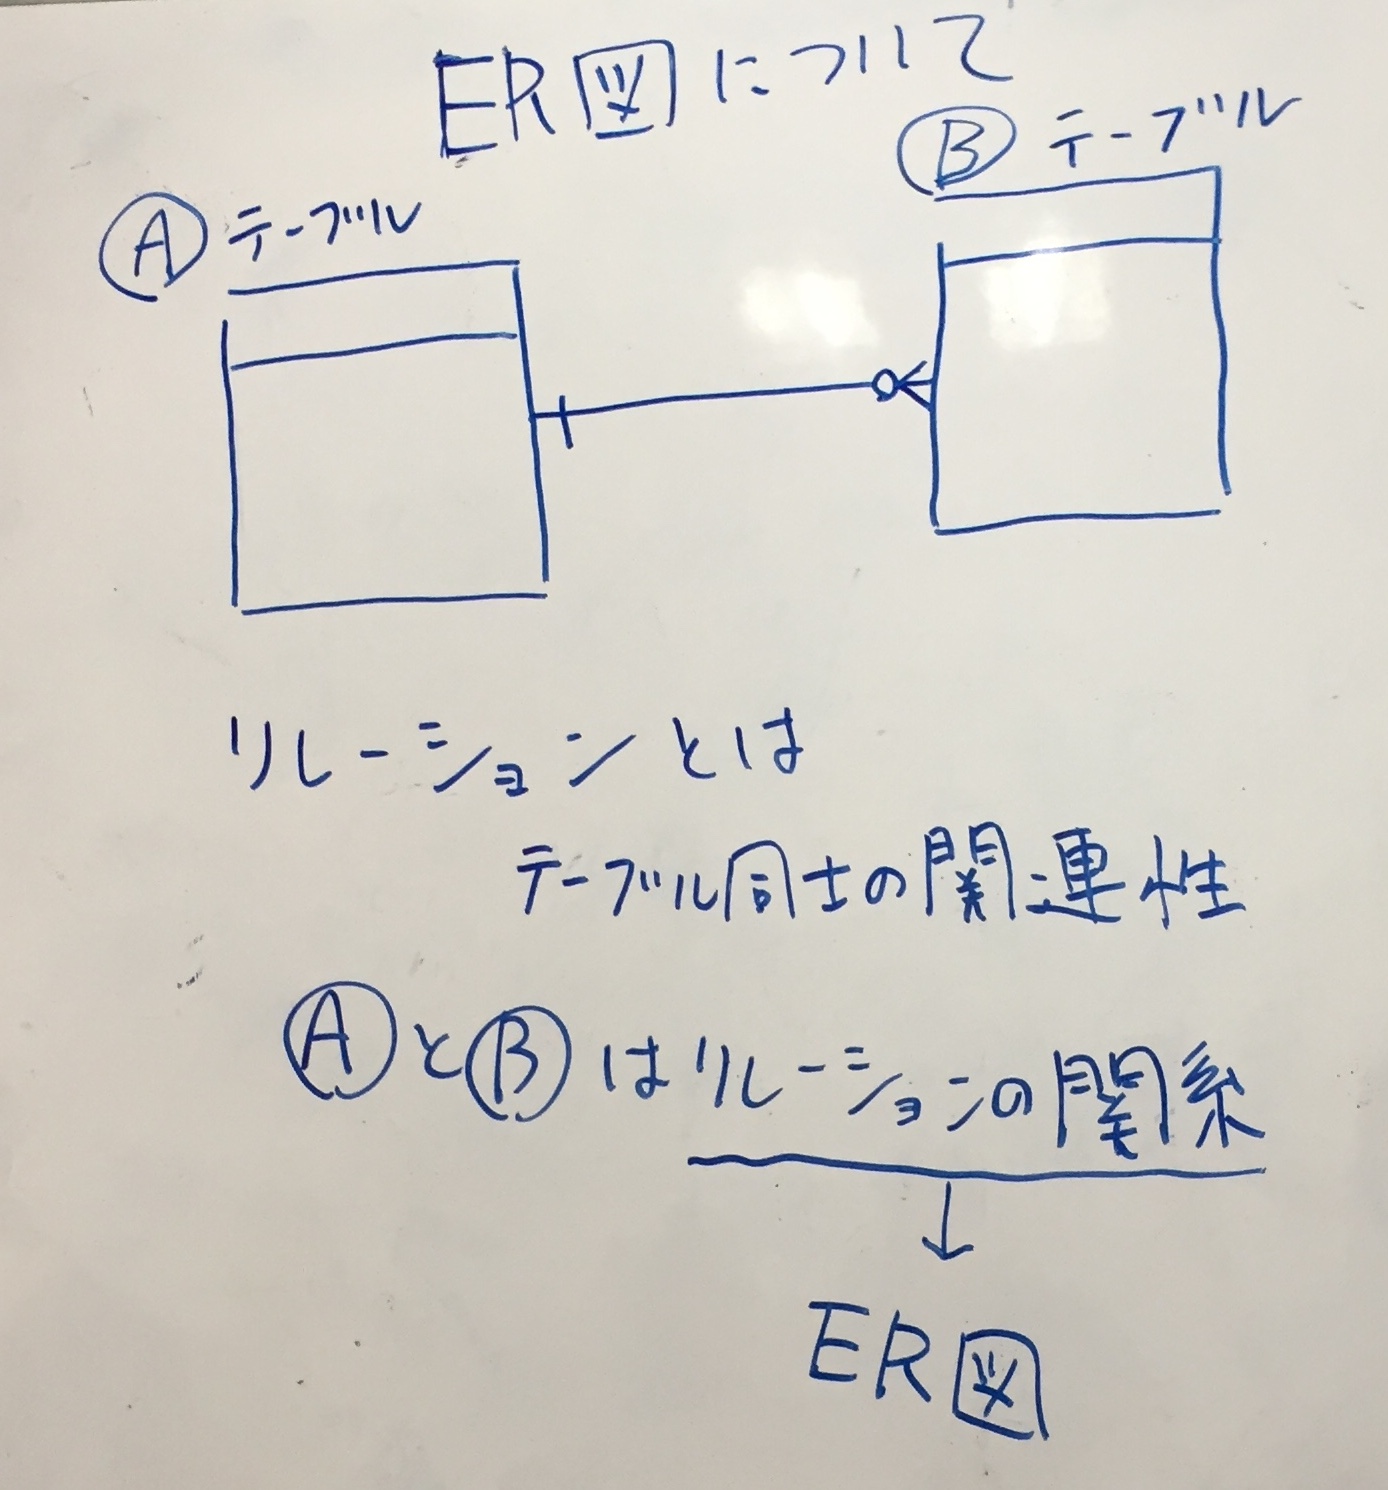 ER図について
Ⓐ テーブル
Ⓑ テーブル
リレーションとは
テーブル同士の関連性
ⒶとⒷはリレーションの関係
↓
ER図